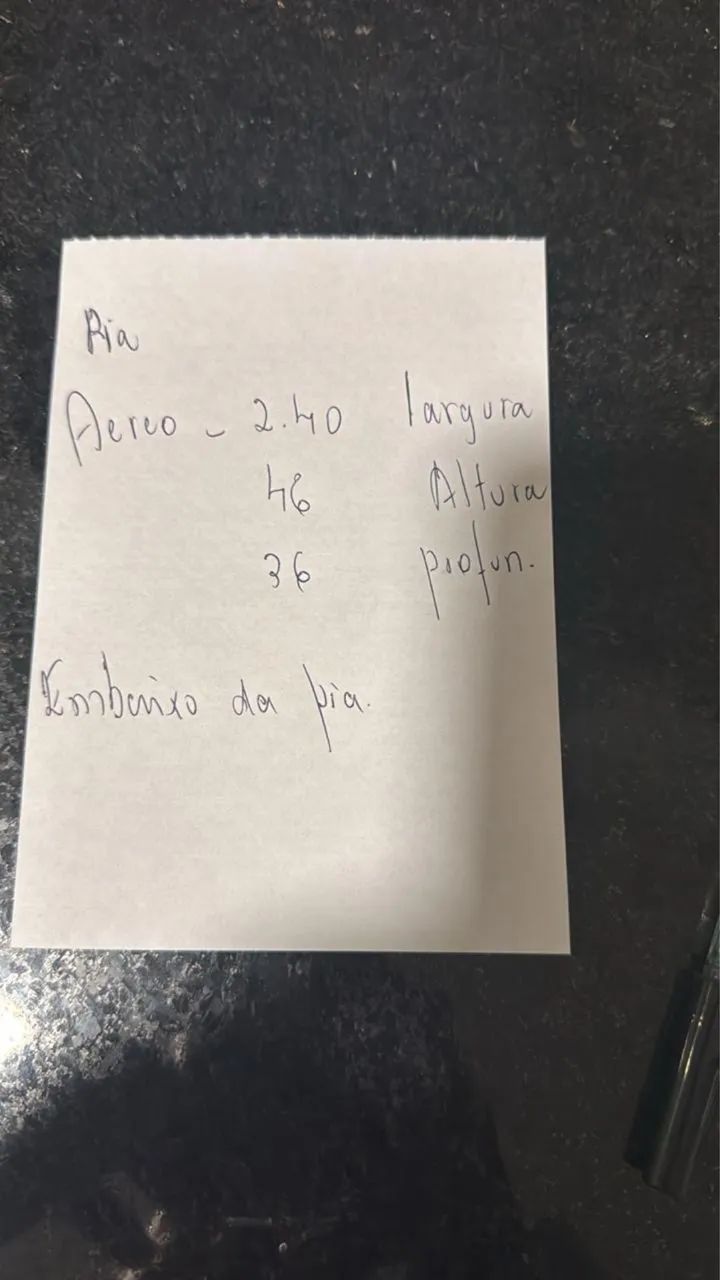 Pia
Aereo - 2.40 largura
46 Altura
36 profun.
Embaixo da pia.